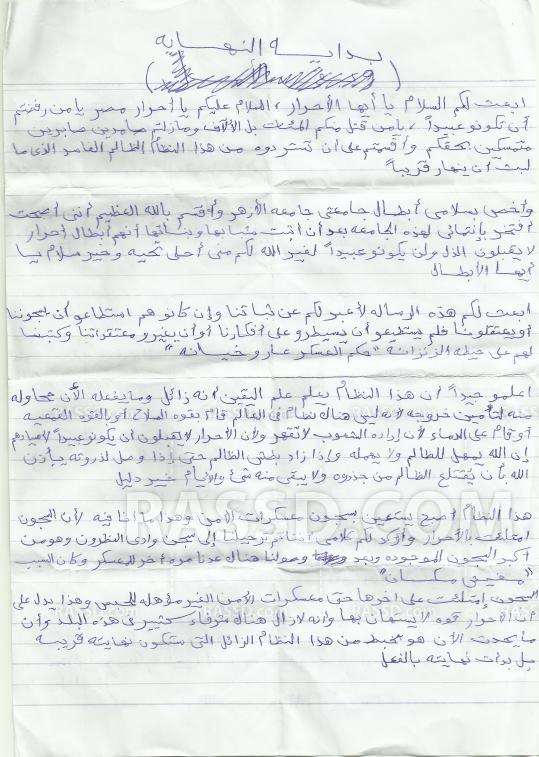 بداية النهايه
ابعث لكم السلام يا أيها الأحرار، السلام عليكم يا أحرار مصر يا من رفضتم
أن تكونو عبيداً، يا من قتل منكم المئات بل الآلاف ومازلتم صامدين صابرين
متمسكين بحقكم وأقسمتم على أن تستردوه من هذا النظام الظالم الفاسد الذى ما
لبث أن ينهار قريباً
وأخص بسلامى أبطال جامعتى جامعه الأزهر وأقسم بالله العظيم أننى أصبحت
أفتخر بإنتمائى لهذه الجامعه بعد أن أثبت شبابها وبناتها أنهم أبطال أحرار
لا يقبلون الذل ولن يكونو عبيداً لغير الله لكم منى أحلى تحيه وخير سلام يا
أيها الأبطال
ابعث لكم هذه الرساله لأعبر لكم عن ثباتنا وإن كانو هم استطاعو أن يسجوننا
أو يعتقلوننا فلم يستطيعو أن يسيطرو على أفكارنا أو أن يغيرو معتقداتنا وكتبنا
لهم على حيطه الزنزانة "حكم العسكر عار وخيانه"
اعلمو جيداً أن هذا النظام يعلم علم اليقين أنه زائل وما يفعله الأن محاوله
منه لتأمين خروجه لأنه ليس هناك نظام فى العالم قام بقوه السلاح أى القوه القمعيه
أو قام على الدماء لأن إراده الشعوب لا تقهر ولأن الأحرار لا يقبلون أن يكونو عبيداً لأسيادهم
إن الله يمهل للظالم ولا يهمله وإذا زاد بطش الظالم حتى إذا وصل لذروته يأذن
الله بأن يُقتلع الظالم من جذوره ولا يبقى منه شئ والأيام خير دليل
هذا النظام أصبح يستعين بسجون معسكرات الأمن وهذا ما أنا فيه لأن السجون
امتلئت بالأحرار وأؤكد لكم كلامى أننا تم ترحيلنا إلى سجن وادى النطرون وهو من
أكبر السجون الموجوده وبعد وصولنا هناك عدنا مره أخر للمعسكر وكان السبب
"مفيش مكان"
السجون إمتلئت على اخرها حتى معسكرات الأمن الغير مؤهله للحبس وهذا يدل على
أن الأحرار قوه لا يستهان بها وأنه لازال هناك شرفاء كثيرين فى هذه البلد وأن
ما يحدث الأن هو تخبط من هذا النظام الزائل التى ستكون نهايته قريبه
بل بدأت نهايته بالفعل
RASSD.COM